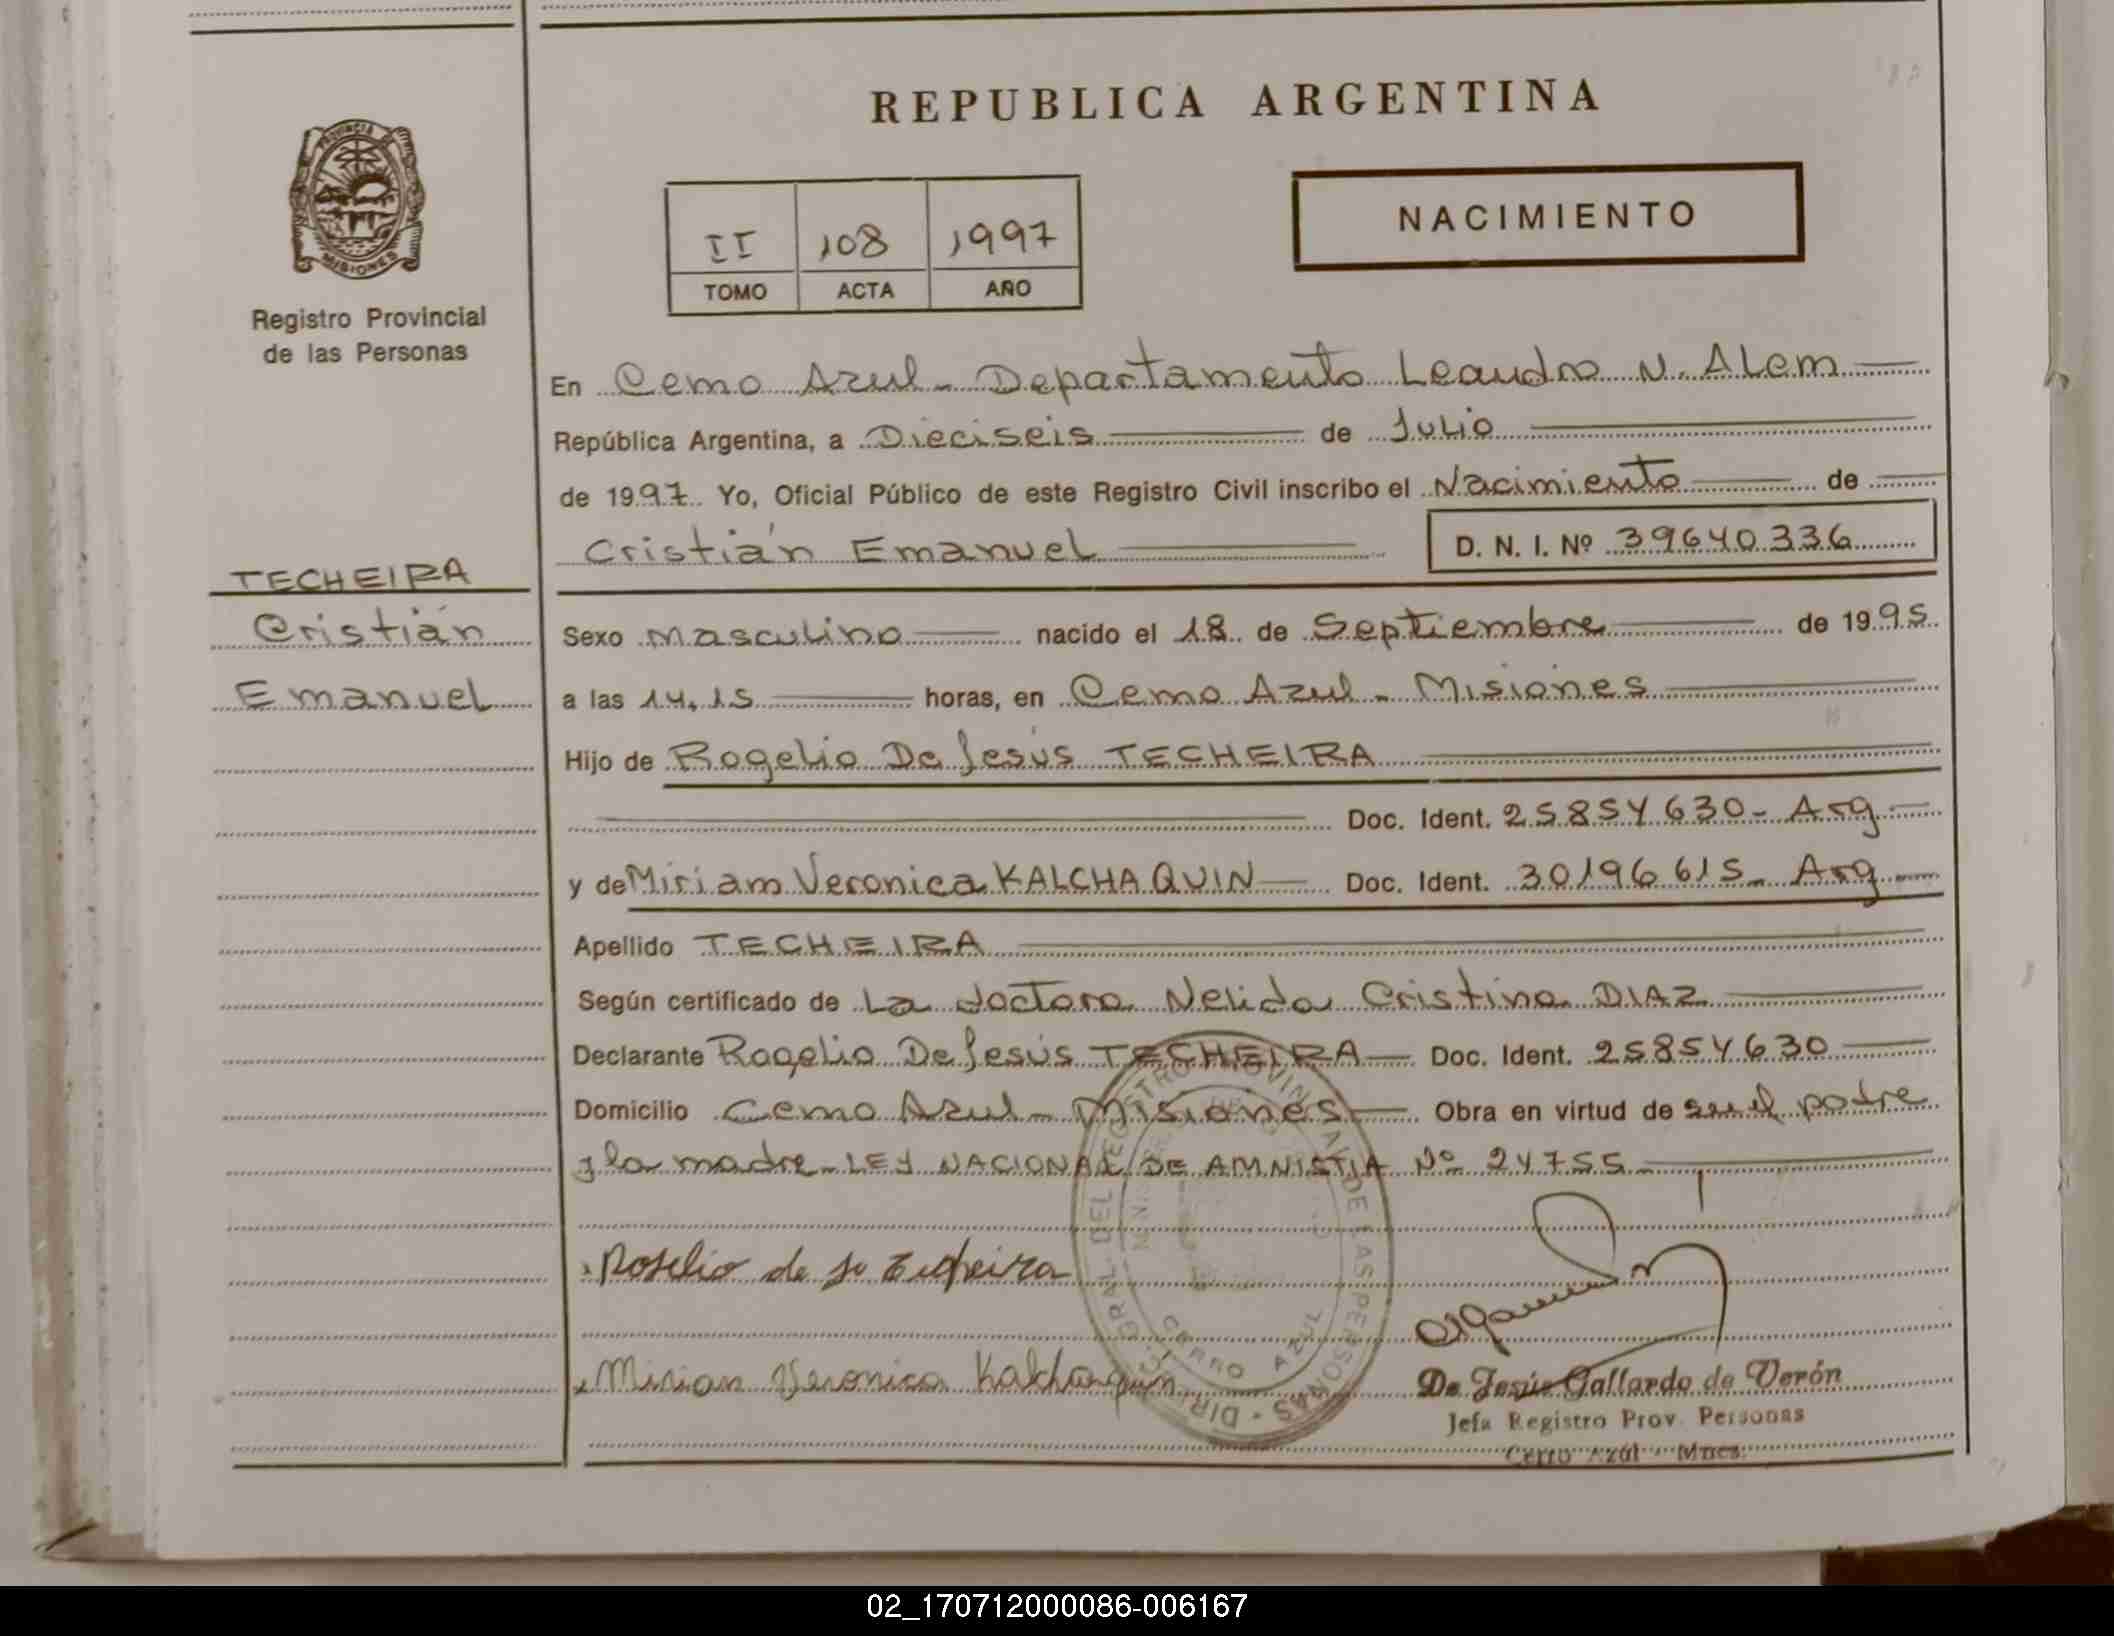 REPUBLICA ARGENTINA
PROVINCIA DE MISIONES
Registro Provincial
de las Personas
II 108 1997
TOMO ACTA AÑO
NACIMIENTO
En Cerro Azul - Departamento Leandro N. Alem
República Argentina, a Dieciseis de Julio
de 1997. Yo, Oficial Público de este Registro Civil inscribo el Nacimiento de
Cristián Emanuel D. N. I. Nº 39640336
TECHEIRA
Cristián
Emanuel
Sexo Masculino nacido el 18 de Septiembre de 1995
a las 14,15 horas, en Cerro Azul - Misiones
Hijo de Rogelio De Jesús TECHEIRA
Doc. Ident. 25854630 - Arg
y de Miriam Veronica KALCHAQUIN Doc. Ident. 30196615 - Arg
Apellido TECHEIRA
Según certificado de La doctora Nelida Cristina DIAZ
Declarante Rogelio De Jesús TECHEIRA Doc. Ident. 25854630
Domicilio Cerro Azul - Misiones Obra en virtud de ser el padre
y la madre - LEY NACIONAL DE AMNISTIA Nº 24755
Rogelio de Je Techeira
Mirian Veronica Kalchaquin
DIREC. GRAL. DEL REGISTRO PROVINCIAL DE LAS PERSONAS
CERRO AZUL
De Jesús Gallardo de Verón
Jefa Registro Prov. Personas
Cerro Azúl - Mnes.
02_170712000086-006167